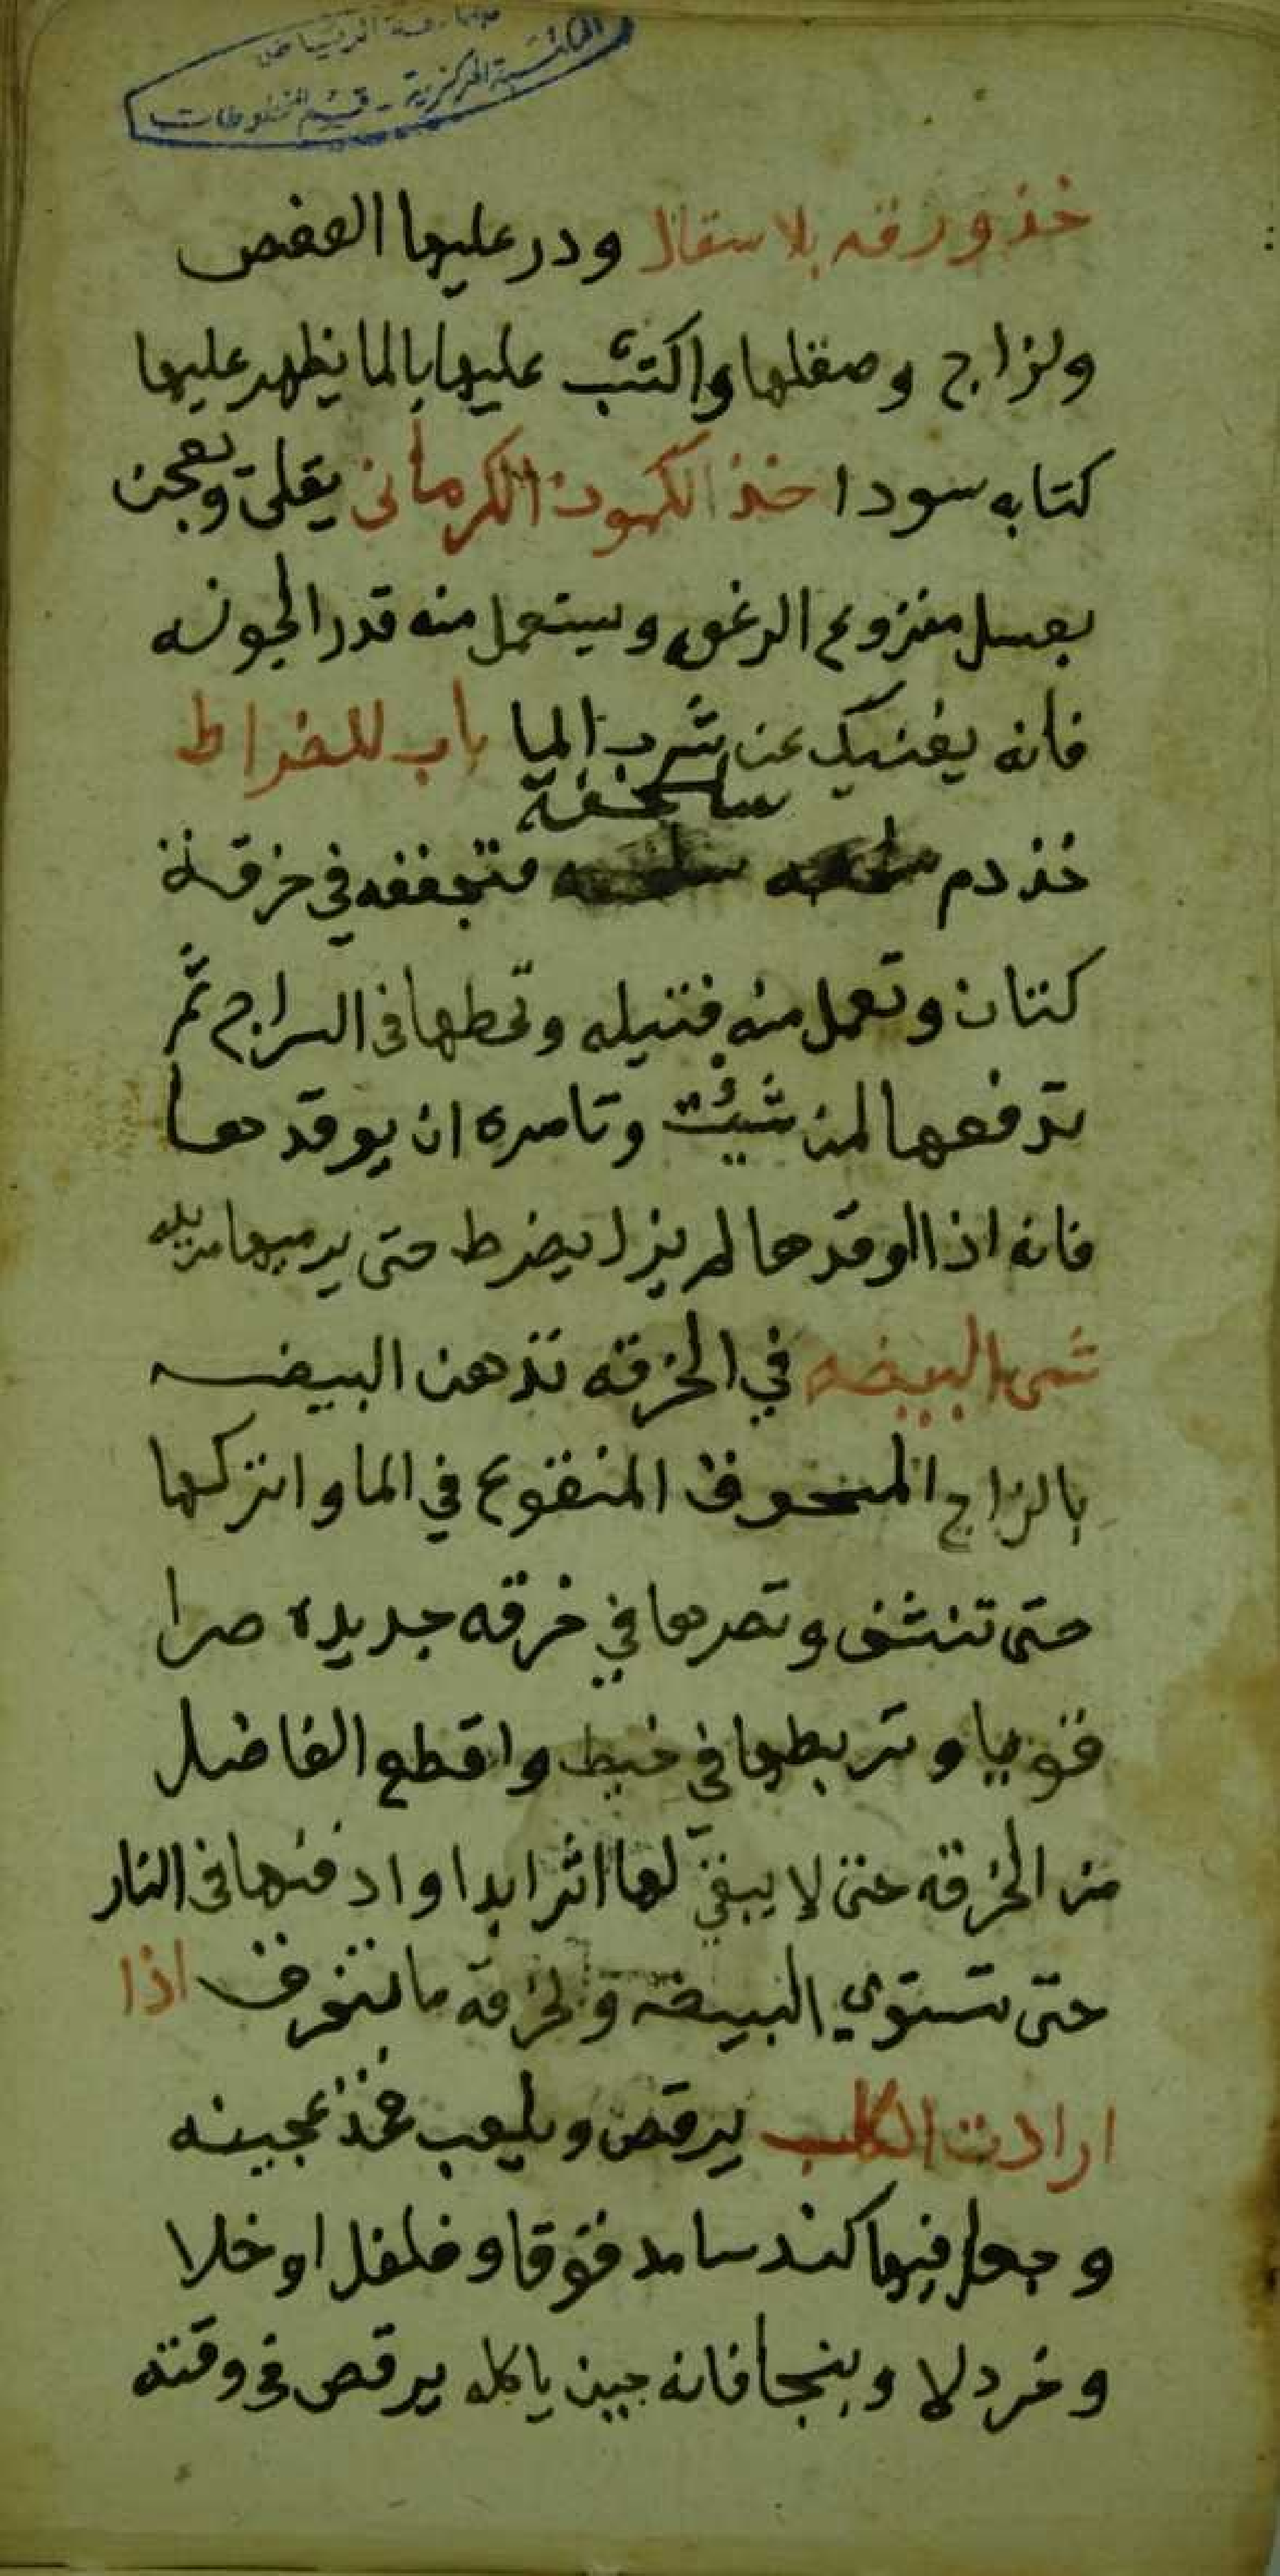 جامعة الرياض
المكتبة المركزية - قسم المخطوطات
خذ ورقه بلا سقال ودر عليها العفص
ولزاج وصقلها واكتب عليها بالما يظهر عليها
كتابه سودا خذ الكمون الكرماني يقلى ويعجن
بعسل منزوع الرغوه ويستعمل منه قدر الجوزه
فانه يغنيك عن شرب الما باب للضراط
سلحفة
خذ دم فتجففه في خرقة
كتان وتعمل منه فتيله وتحطها في السراج ثم
تدفعها لمن شيئت وتامره ان يوقدها
فانه اذا اوقدها لم يزل يضرط حتى يرميها من يده
شى البيضه في الخرقه تدهن البيضه
بالزاج المسحوق المنقوع في الما واتركها
حتى تنشف وتصرها في خرقه جديده صرا
قويا وتربطها في خيط واقطع الفاضل
من الخرقه حتى لا يبقى لها اثر ابدا وادفنها في النار
حتى تستوي البيضه ولخرقه ما تنحرق اذا
ارادت الكلب يرقص ويلعب فخذ عجينه
وجعل فيها كندسا مدقوقا وفلفلا وخلا
وخردلا وبنجا فانه حين ياكله يرقص في وقته